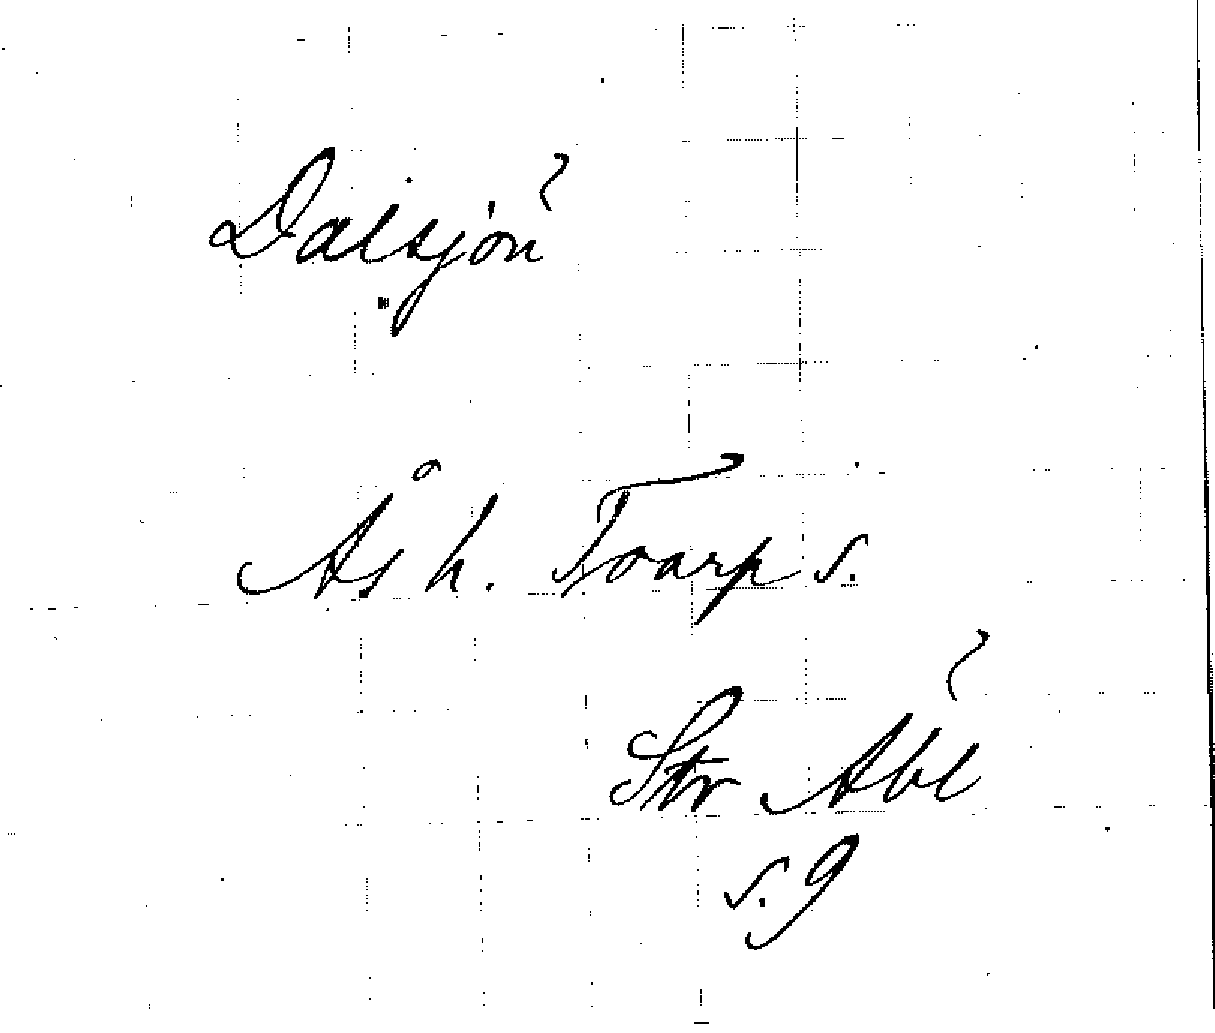 Dalsjön
Ås h. Toarp s.
Str Abl
s. 9